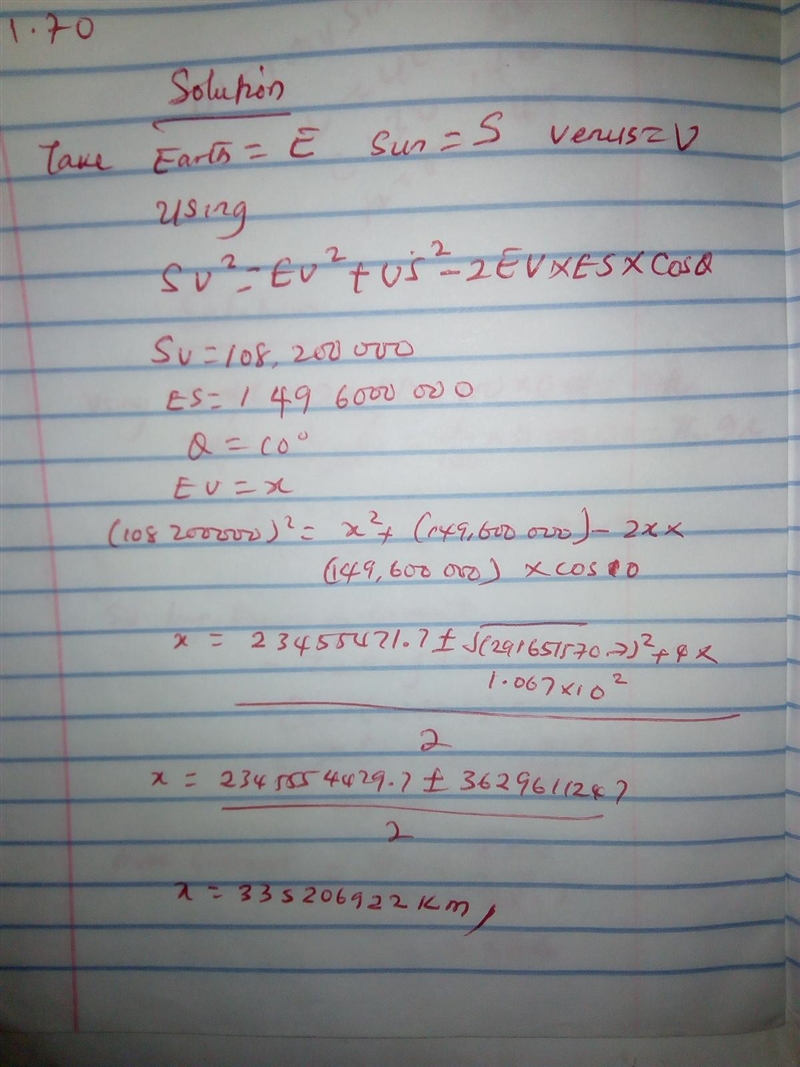 1.70
Solution
Take Earth = E Sun = S Venus = V
Using
SV² = EV² + VS² - 2EV×ES×CosQ
SV = 108,200 000
ES = 1 49 6000 000
Q = 10°
EV = x
(108 200000)² = x² + (149,600 000) - 2x×
(149,600 000) × cos 10
x = 23455471.7 ± √(291651570.7)² + 4×
1.067×10²
2
x = 2345554429.7 ±
2
x = 335206922 Km,